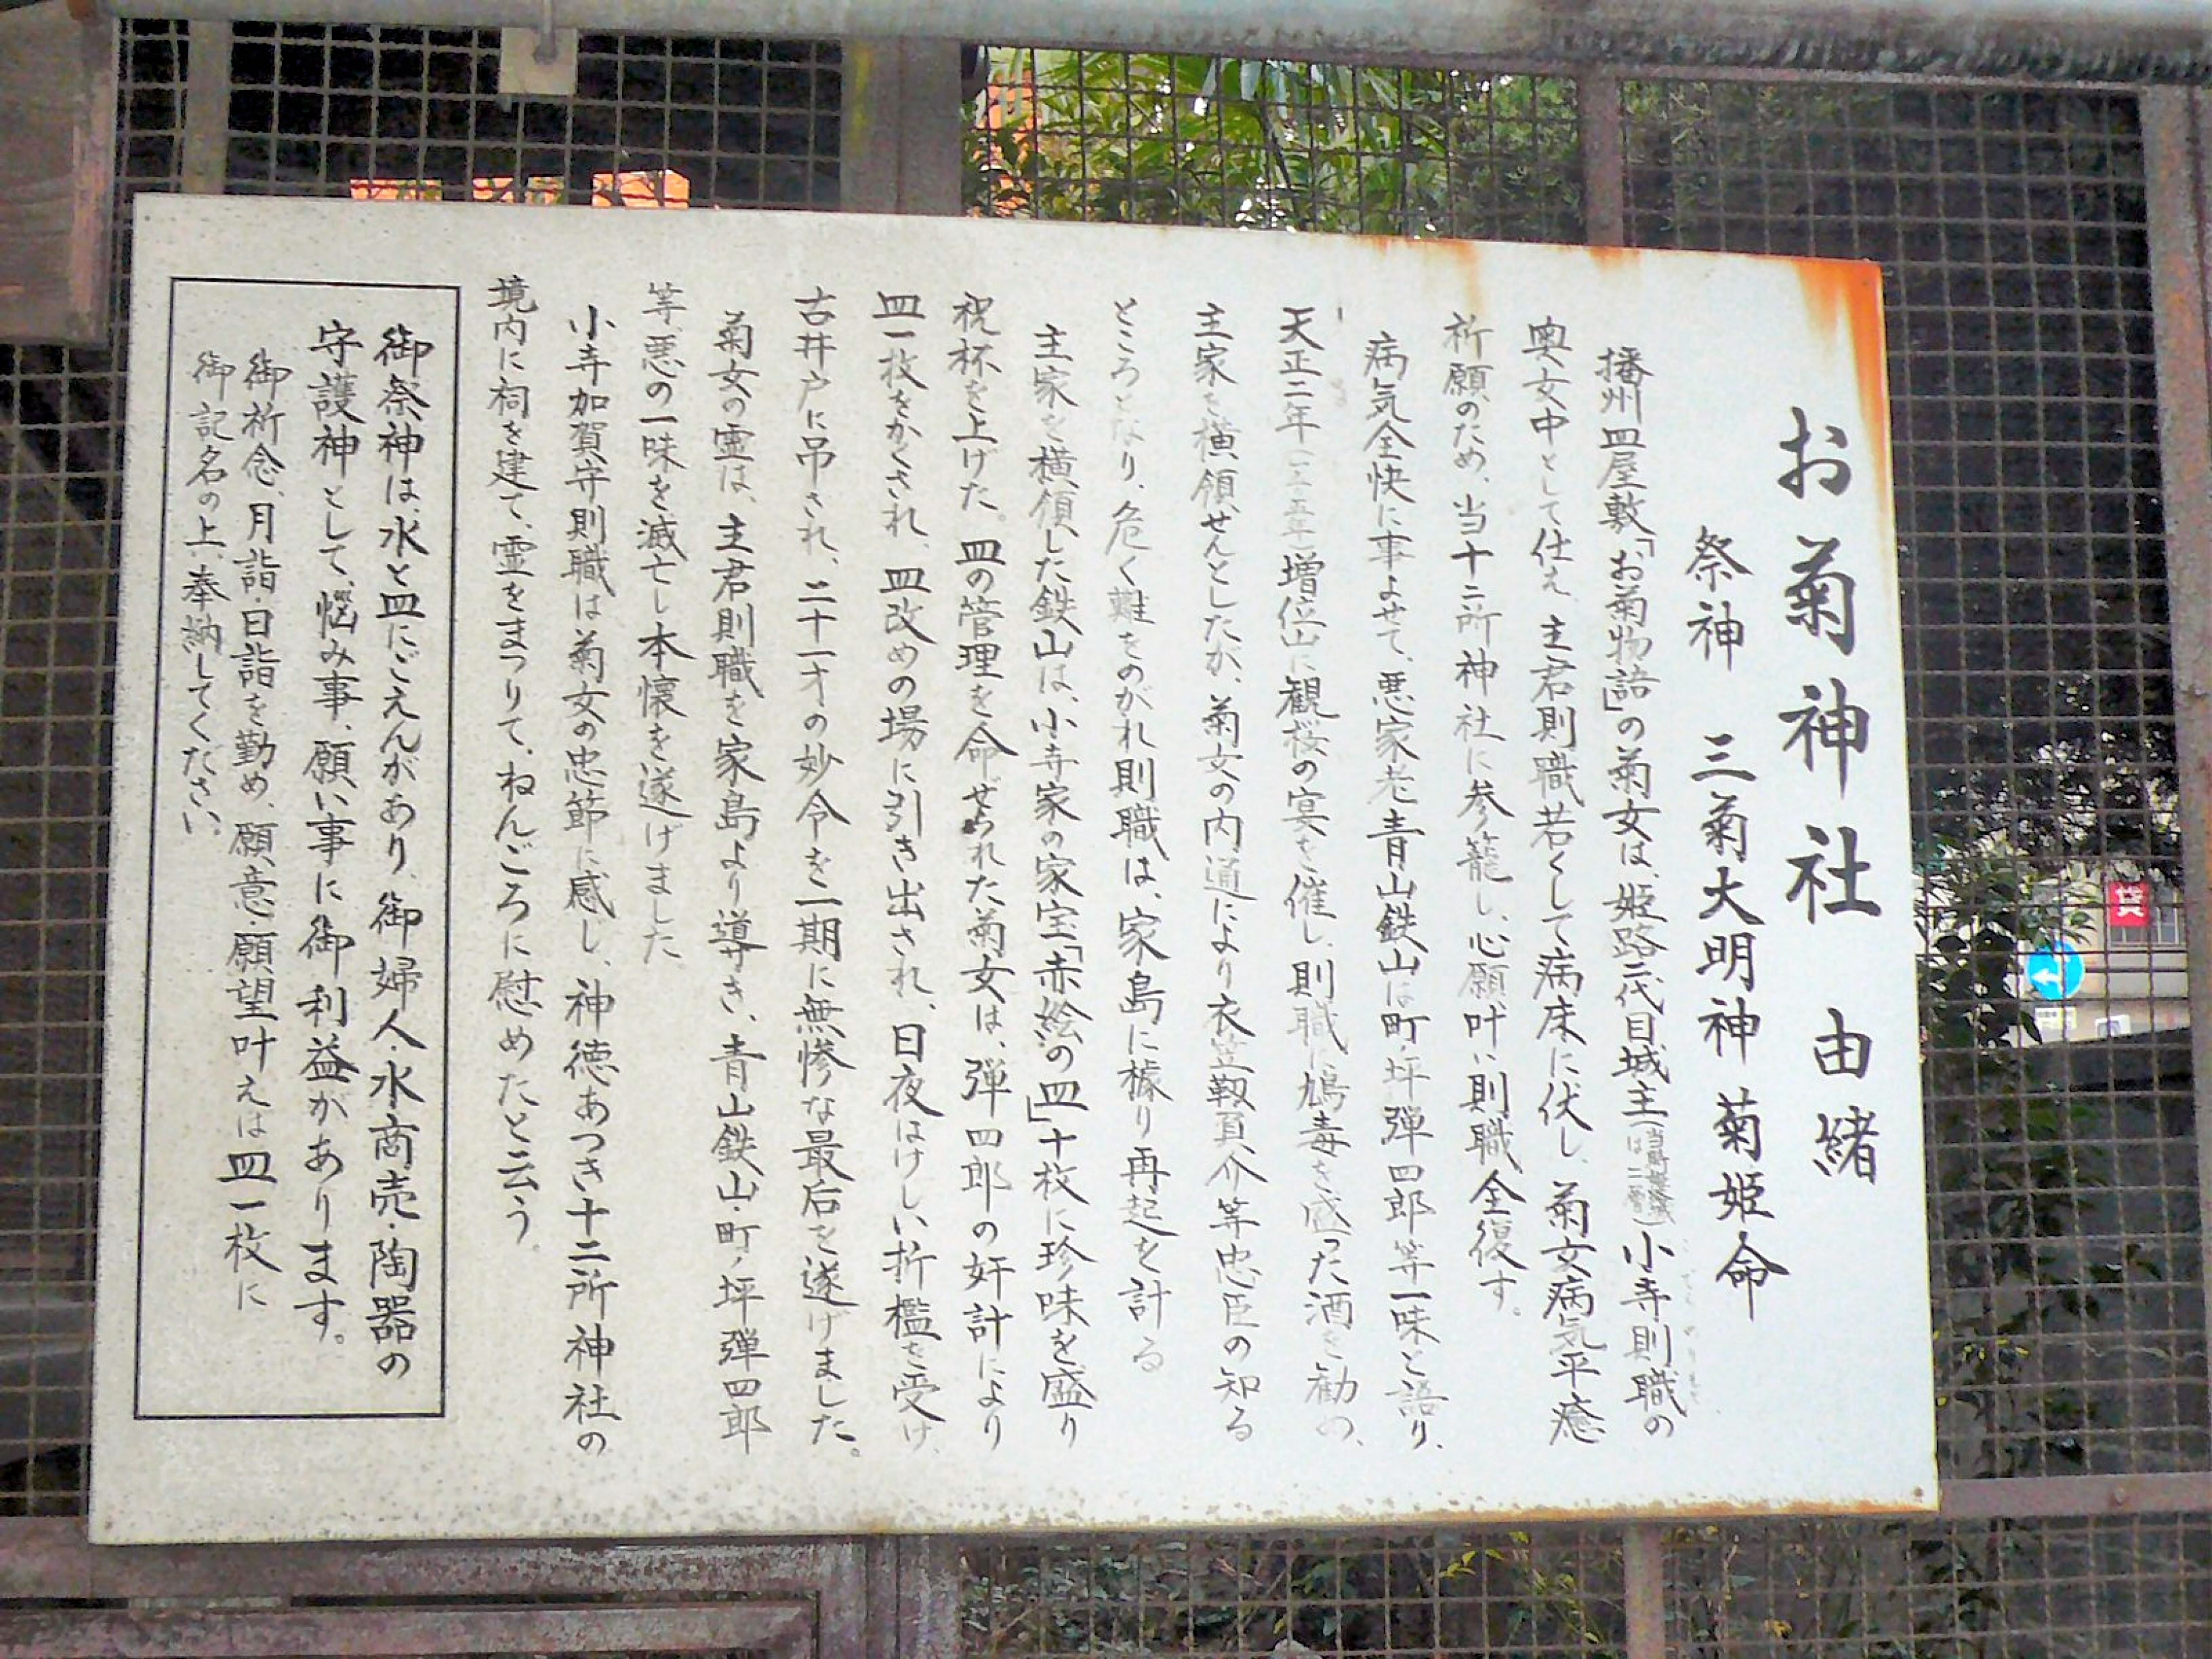 お菊神社 由緒
祭神 三菊大明神 菊姫命
播州皿屋敷「お菊物語」の菊女は、姫路二代目城主(当時姫路城は二層)小寺則職の
奥女中として仕え、主君則職若くして病床に伏し、菊女病気平癒
祈願のため、当十二所神社に参籠し、心願叶い則職全復す。
病気全快に事よせて、悪家老青山鉄山は町ノ坪弾四郎等一味と語り、
天正二年 増位山に観桜の宴を催し、則職に鴆毒を盛った酒を勧め、
主家を横領せんとしたが、菊女の内通により衣笠靱負介等忠臣の知る
ところとなり、危く難をのがれ則職は、家島に據り再起を計る
主家を横領した鉄山は、小寺家の家宝「赤絵の皿」十枚に珍味を盛り
祝杯を上げた。皿の管理を命ぜられた菊女は、弾四郎の奸計により
皿一枚をかくされ、皿改めの場に引き出され、日夜はげしい折檻を受け、
古井戸に吊され、二十一才の妙令を一期に無惨な最后を遂げました。
菊女の霊は、主君則職を家島より導き、青山鉄山・町ノ坪弾四郎
等、悪の一味を滅亡し本懐を遂げました。
小寺加賀守則職は菊女の忠節に感し、神徳あつき十二所神社の
境内に祠を建て、霊をまつりて、ねんごろに慰めたと云う。
御祭神は、水と皿にごえんがあり、御婦人・水商売・陶器の
守護神として、悩み事、願い事に御利益があります。
御祈念、月詣・日詣を勤め、願意・願望叶えは皿一枚に
御記名の上、奉納してください。
貸